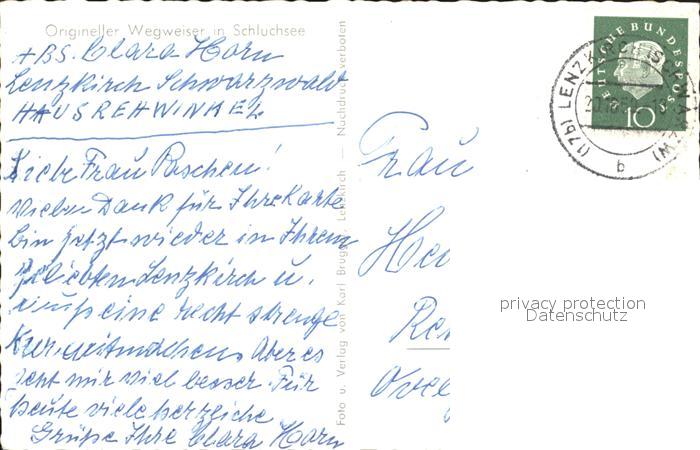 Origineller Wegweiser in Schluchsee
+BS. Clara Horn
Lenzkirch Schwarzwald
HAUS REHWINKEL
Liebe Frau Paschen!
Vielen Dank für Ihre Karte
bin jetzt wieder in Ihrem
geliebten Lenzkirch u.
muß eine recht strenge
Kur mitmachen. Aber es
geht mir viel besser. Für
heute viele herzliche
Grüße Ihre Clara Horn
Foto u. Verlag von Karl Brugger, Lenzkirch — Nachdruck verboten
Frau
Hei
Over
DEUTSCHE BUNDESPOST
10
(17b) LENZKIRCH
b
privacy protection
Datenschutz